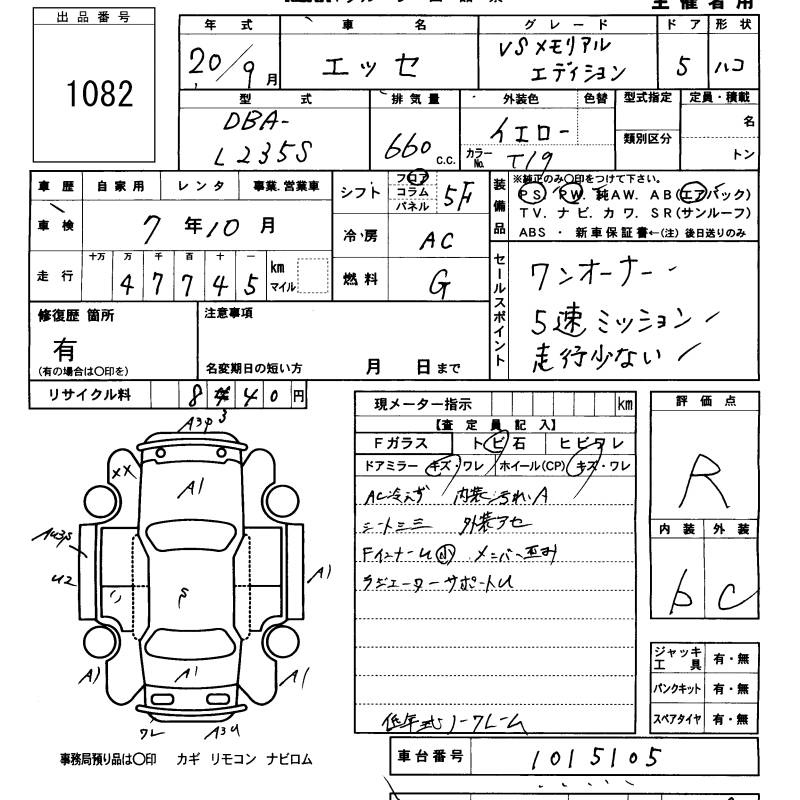 主催者用
出品番号
1082
年式 車名 グレード ドア 形状
20/9月 エッセ VSメモリアル 5 ハコ
エディション
型式 排気量 外装色 色替 型式指定 定員・積載
DBA- 660 c.c. イエロー 類別区分 名
L235S カラーNo. T19 トン
車歴 自家用 レンタ 事業.営業車
車検 7年10月
走行 十万 万 千 百 十 一
4 7 7 4 5 km マイル
シフト フロア コラム パネル 5F
冷房 AC
燃料 G
装備品 ※純正のみ〇印をつけて下さい。
PS. PW. 純AW. AB(エアバック)
TV. ナビ. カワ. SR(サンルーフ)
ABS・新車保証書←(注) 後日送りのみ
セールスポイント
ワンオーナー
5速ミッション
走行少ない
修復歴 箇所
有
(有の場合は〇印を)
注意事項
名変期日の短い方 月 日まで
リサイクル料 8 4 0 円
3
現メーター指示 km
【査定員記入】
Fガラス トビ石 ヒビワレ
ドアミラー キズ・ワレ ホイール(CP) キズ・ワレ
AC冷えず 内装汚れA
シートシミ 外装アセ
FインナーU小 メンバー歪み
ラジエーターサポートU
低年式ノークレーム
評価点
R
内装 外装
b C
ジャッキ 工具 有・無
パンクキット 有・無
スペアタイヤ 有・無
A3P
XX
A1
U2
A1
S
A1
A1
A1
ワレ
A3U
事務局預り品は〇印 カギ リモコン ナビロム
車台番号 1015105